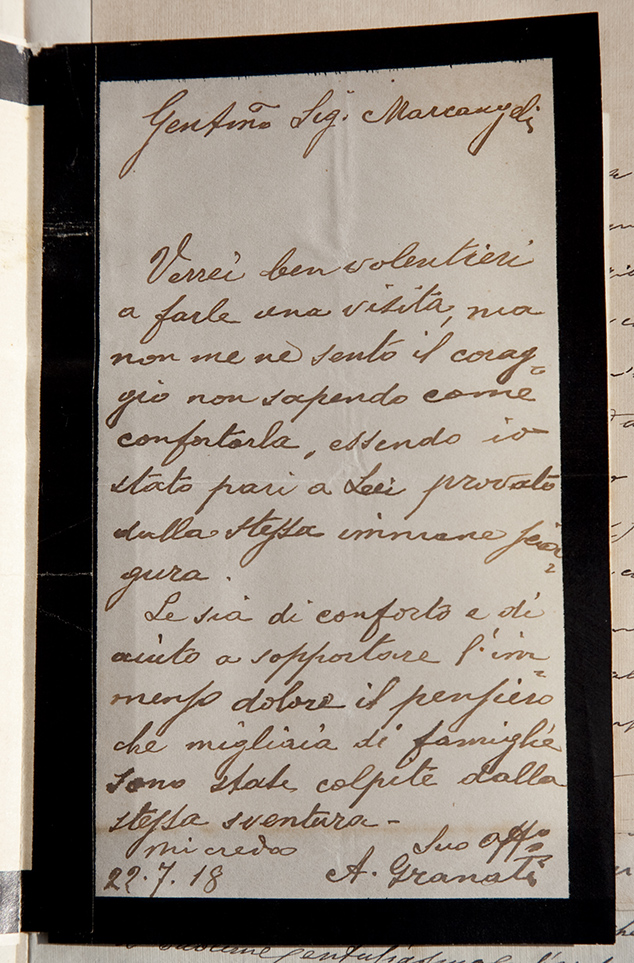 Gentmo Sig. Marcangeli
Verrei ben volentieri
a farle una visita, ma
non me ne sento il corag=
gio non sapendo come
confortarla, essendo io
stato pari a Lei provato
dalla stessa immane scia=
gura.
Le sia di conforto e di
aiuto a sopportare l'im=
menso dolore il pensiero
che migliaia di famiglie
sono state colpite dalla
stessa sventura -
Mi creda
Suo affo
22.7.18 A. Granati